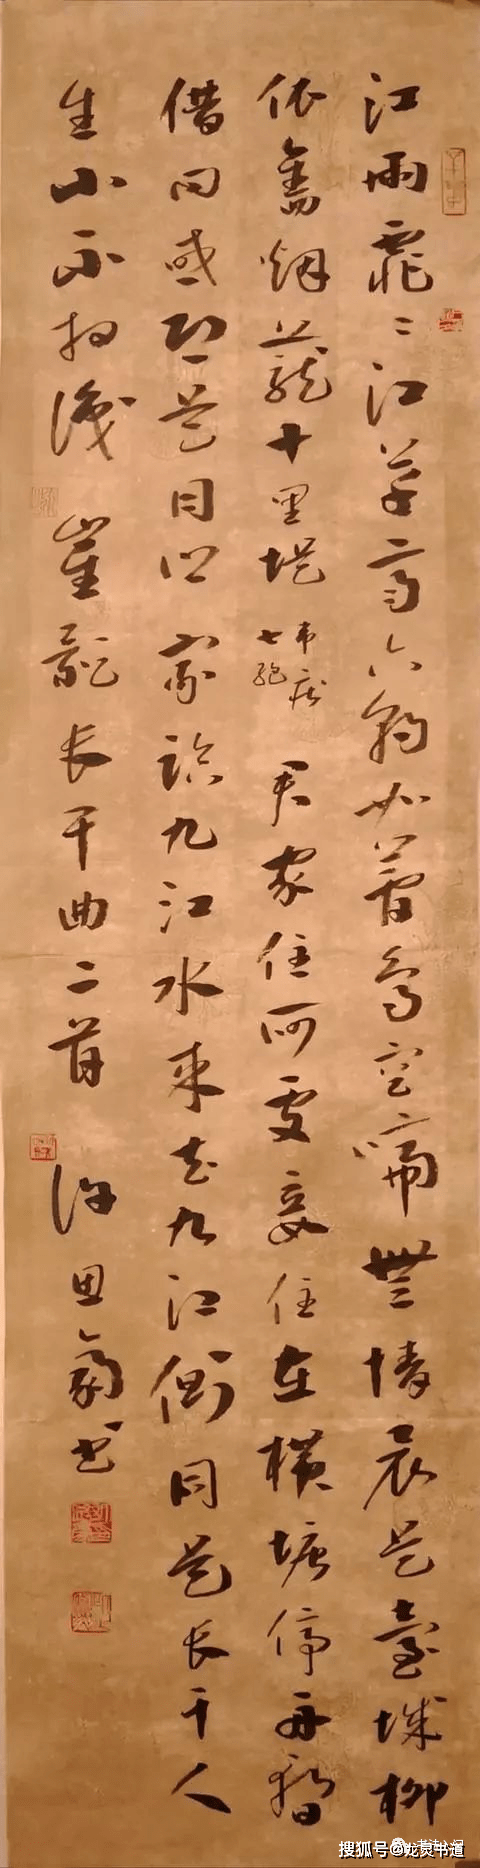 江雨霏〻江草齊六朝如夢鳥空啼無情最是臺城柳
依舊烟籠十里堤 韋莊七絕 君家住何處妾住在橫塘停舟暫
借問或恐是同鄉 家臨九江水來去九江側同是長干人
生小不相識 崔顥長干曲二首 許思豪書
搜狐号@龙灵书道